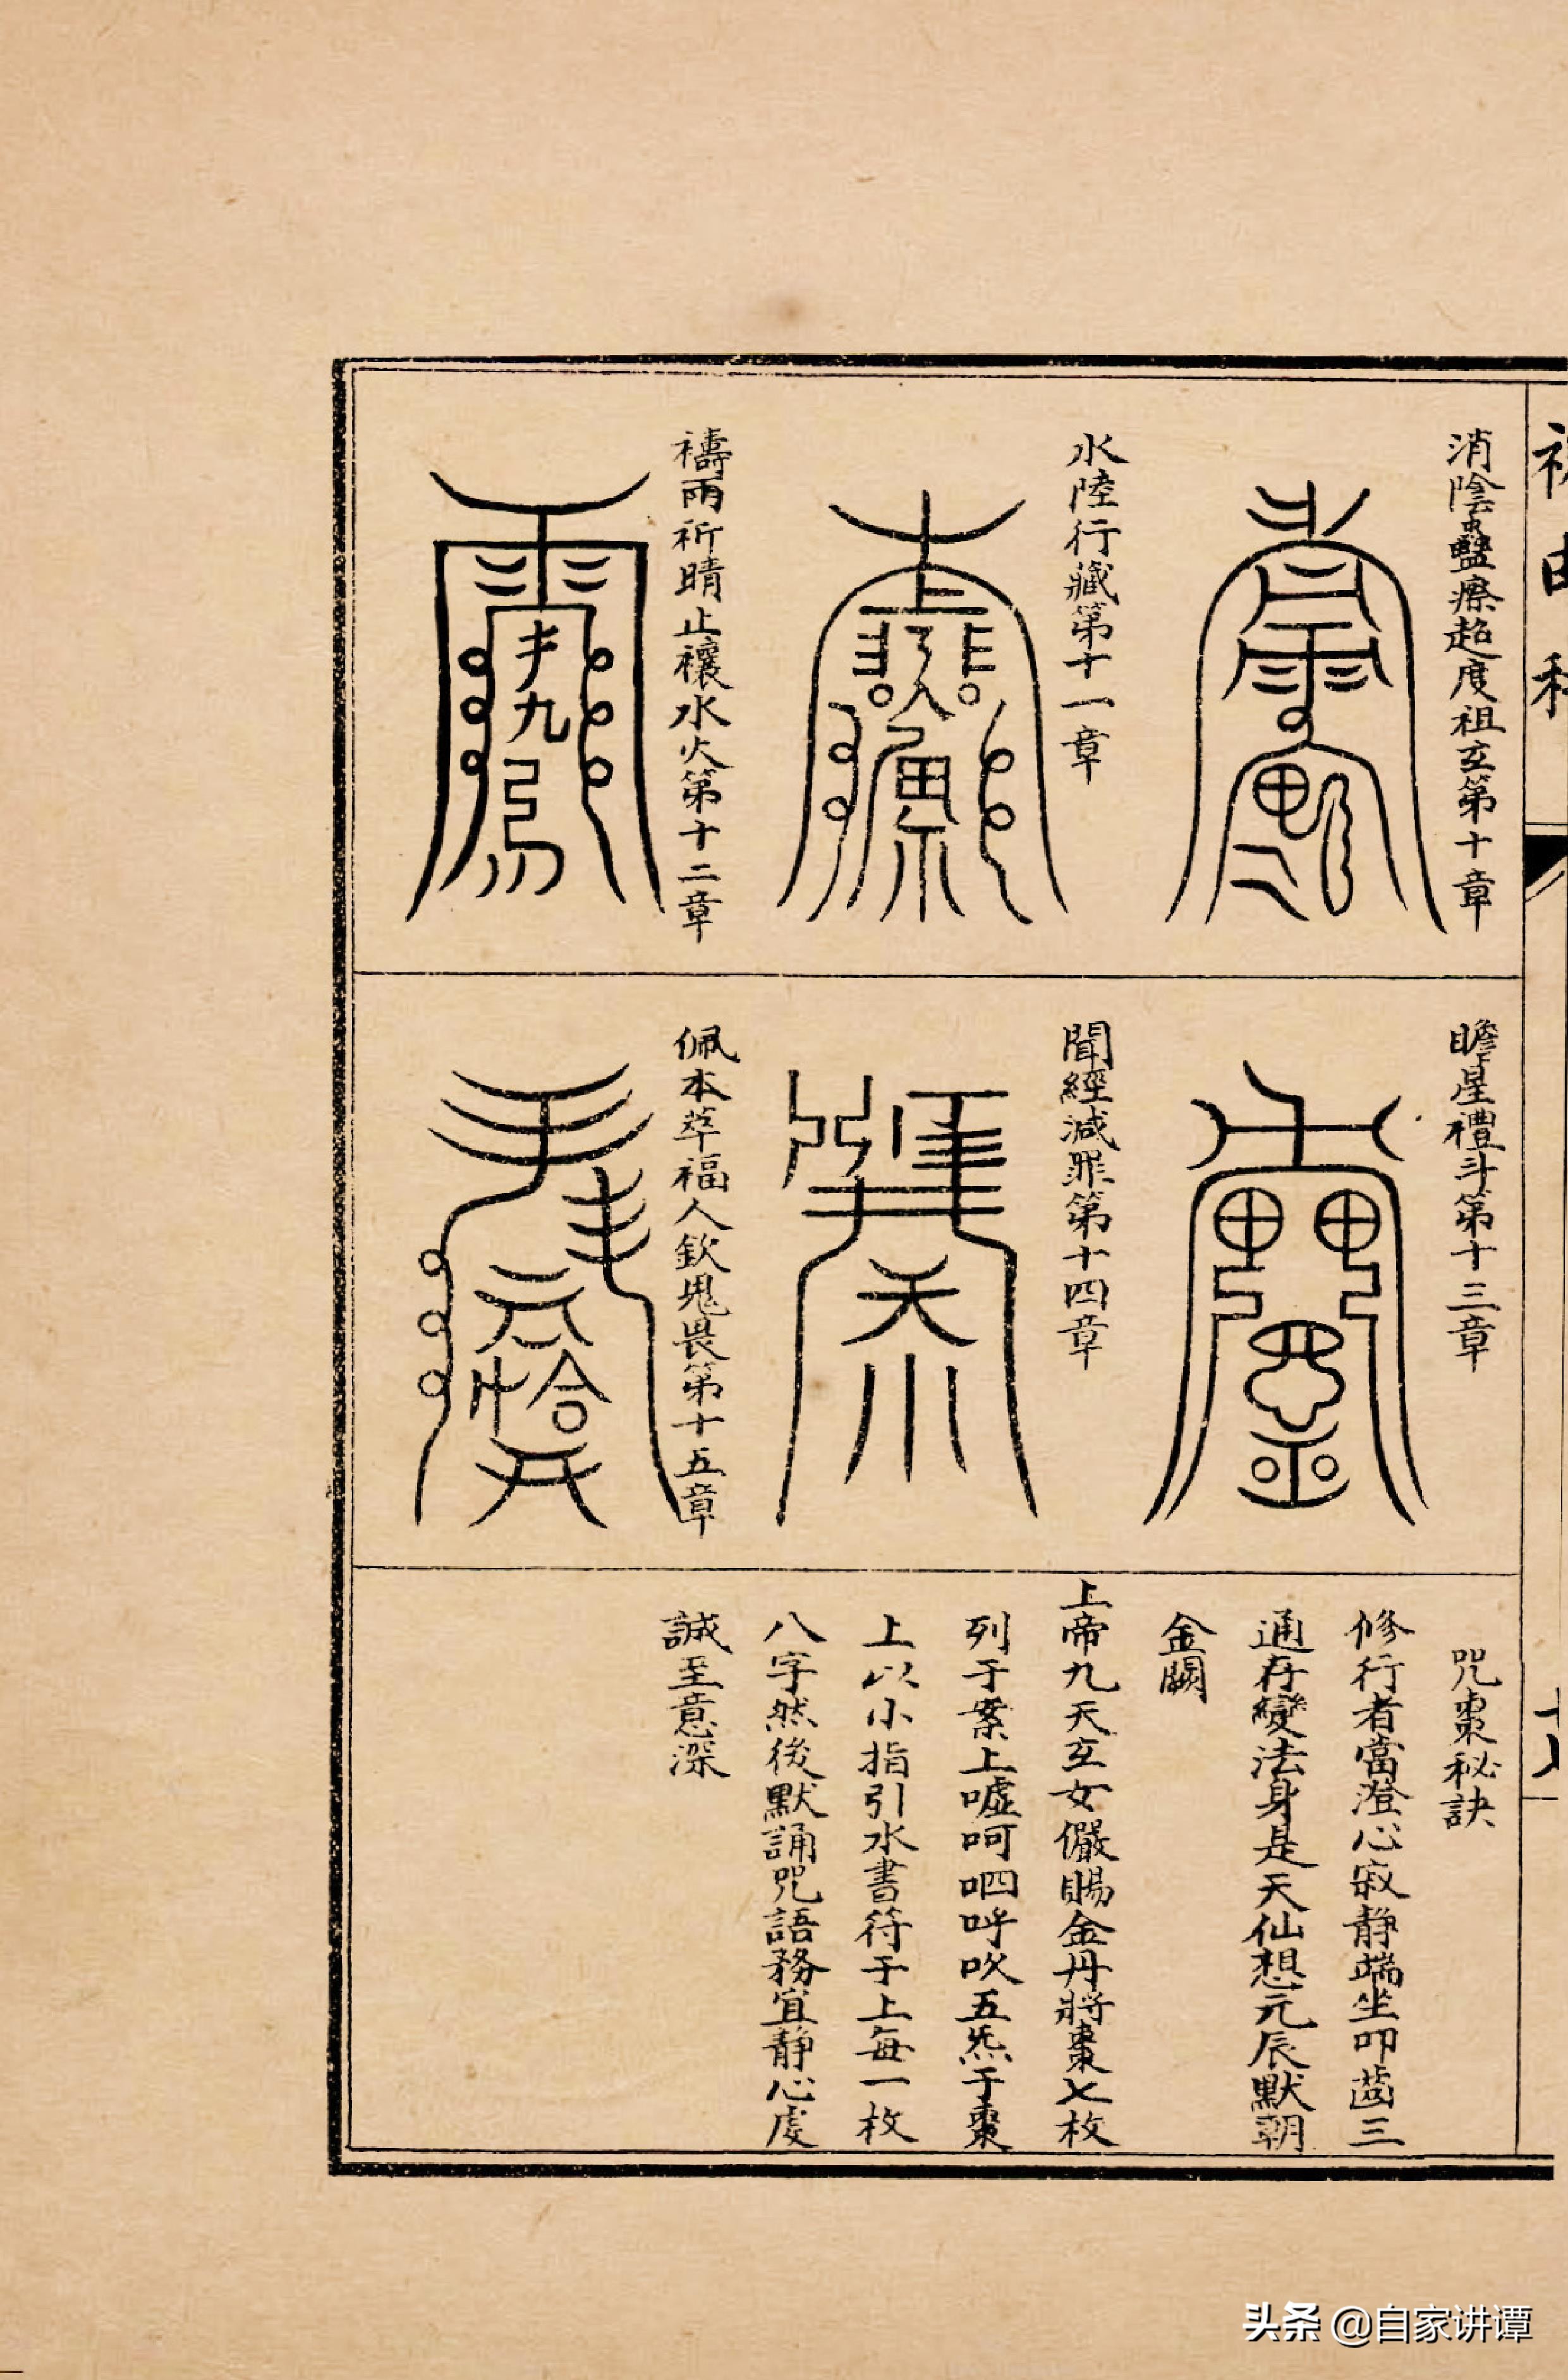 消陰蠱瘵超度祖玄第十章
水陸行藏第十一章
禱雨祈晴止禳水火第十二章
瞻星禮斗第十三章
聞經減罪第十四章
佩本萃福人欽鬼畏第十五章
咒棗秘訣
修行者當澄心寂靜端坐叩齒三
通存變法身是天仙想元辰默朝
金闕
上帝九天玄女儼賜金丹將棗七枚
列于案上噓呵呬呼吹五炁于棗
上以小指引水書符于上每一枚
八字然後默誦咒語務宜靜心虔
誠至意深
头条 @自家讲谭